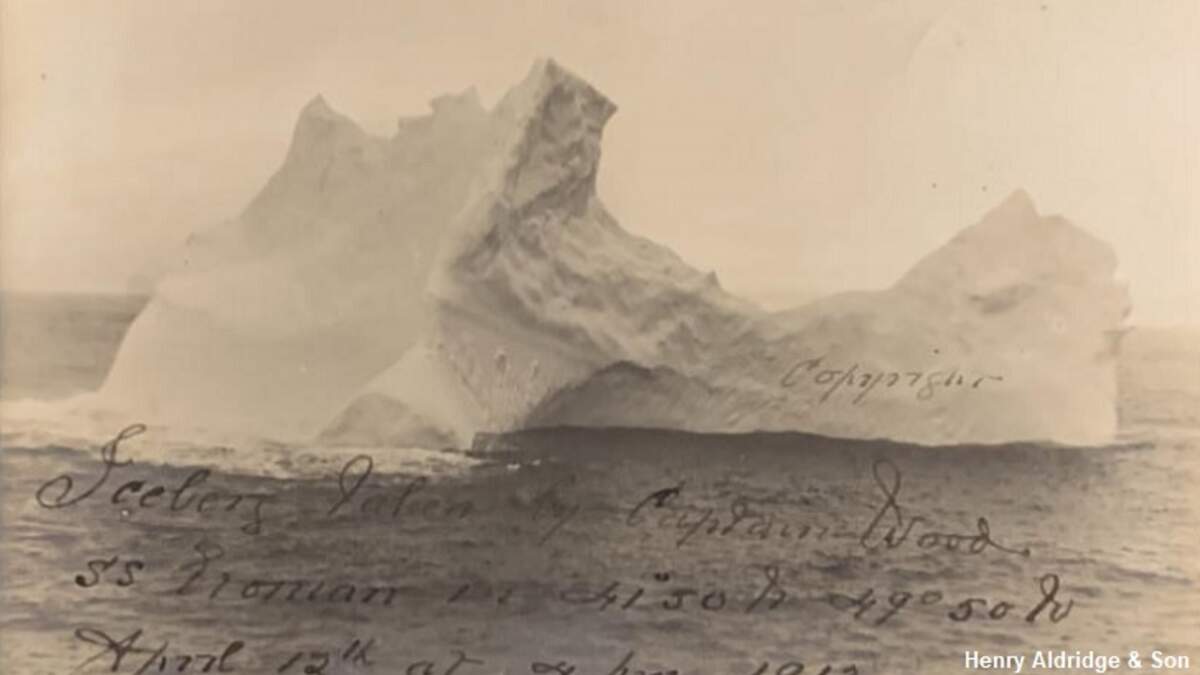 Copyright
Iceberg Taken by Captain Wood.
SS Etonian in 41°50 N 49°50 W
April 12th at 4 pm 1912
Henry Aldridge & Son